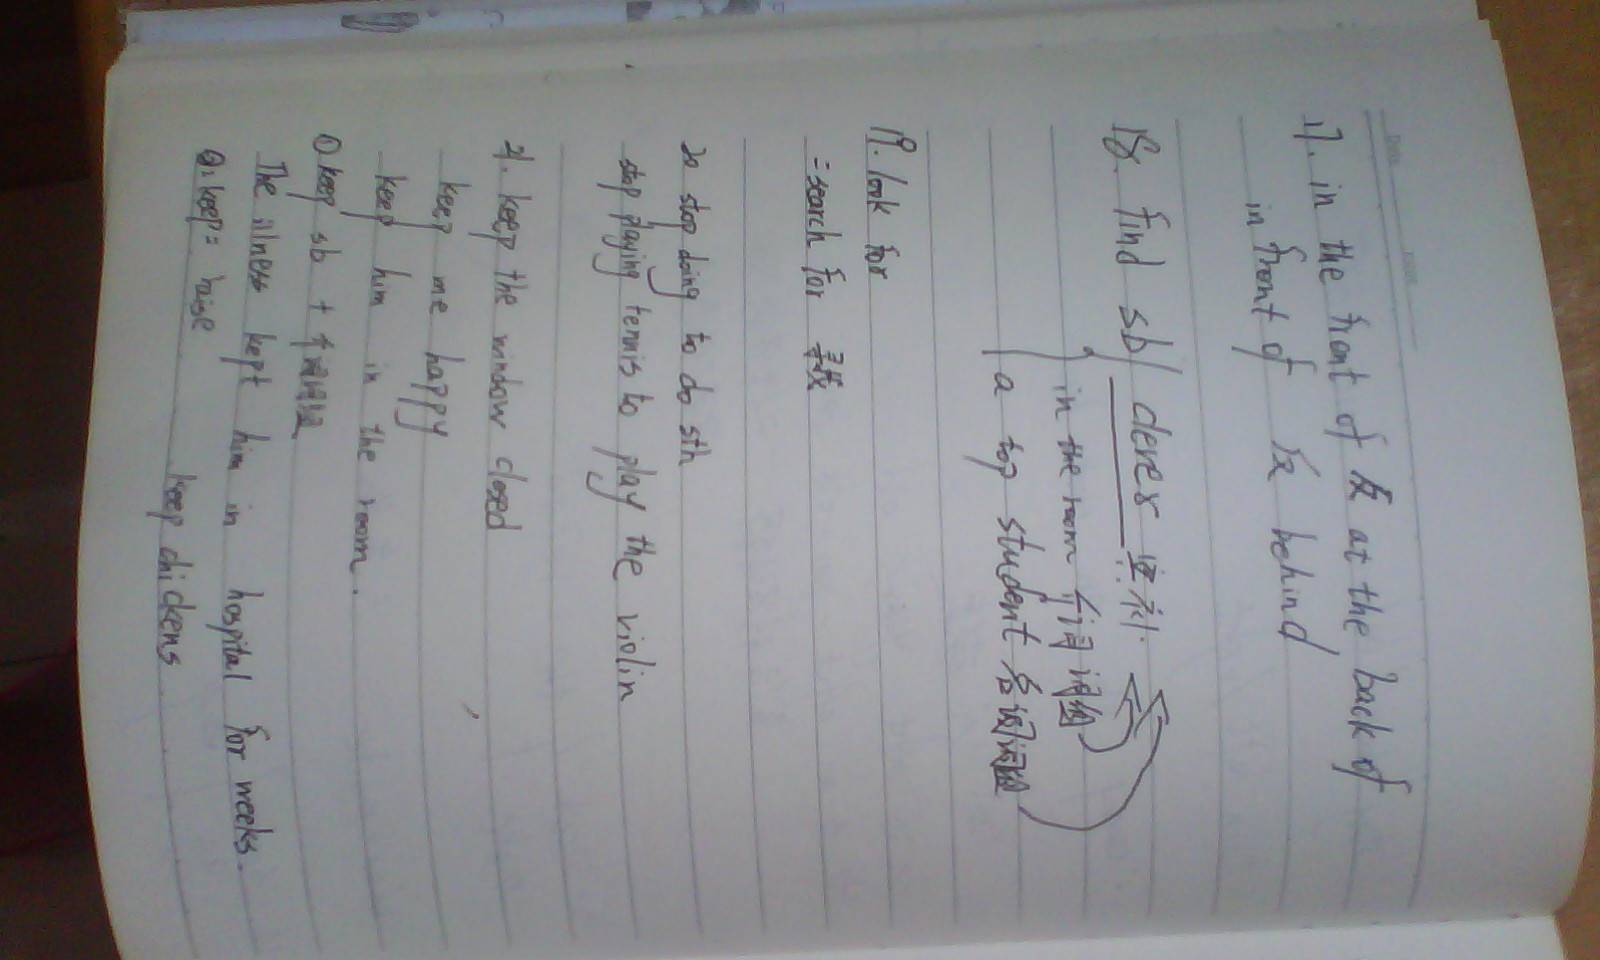 17. in the front of 反 at the back of
in front of 反 behind
18. find sb clever
in the room 介词词组
a top student 名词词组
19. look for
= search for 寻找
20 stop doing to do sth
stop playing tennis to play the violin
21. keep the window closed
keep me happy
keep him in the room.
① keep sb + 介词短语
The illness kept him in hospital for weeks.
②: keep = raise keep chickens